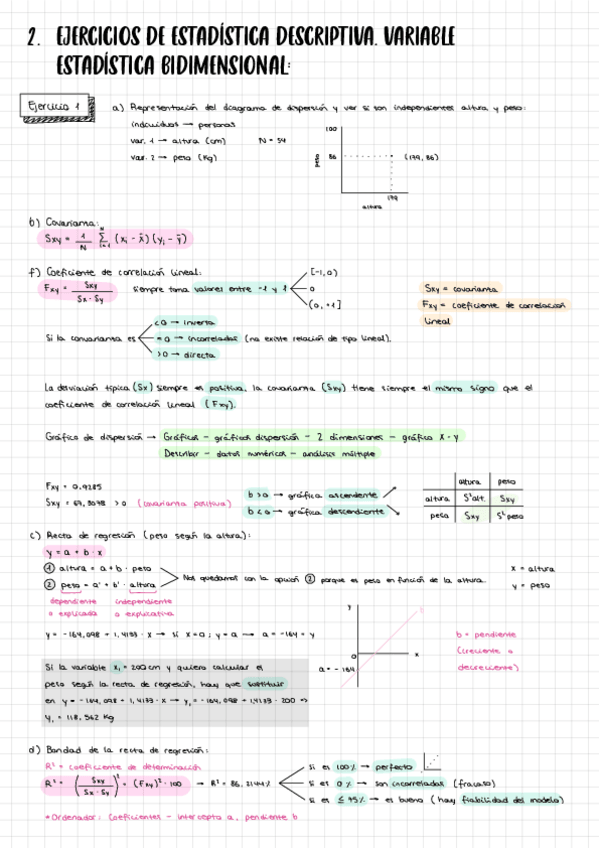 2. EJERCICIOS DE ESTADÍSTICA DESCRIPTIVA. VARIABLE
ESTADÍSTICA BIDIMENSIONAL:
Ejercicio 1
a) Representación del diagrama de dispersión y ver si son independientes altura y peso:
individuos → personas
var. 1 → altura (cm) N = 54
var. 2 → peso (Kg)
100
peso
86
(179, 86)
179
altura
b) Covarianza:
Sxy = 1/N Σ (xi - x̄) (yi - ȳ)
f) Coeficiente de correlación lineal:
Fxy = Sxy / Sx · Sy siempre toma valores entre -1 y 1
[-1, 0)
0
(0, +1]
Sxy = covarianza
Fxy = coeficiente de correlación
lineal
Si la covarianza es
< 0 → inversa
= 0 → incorreladas (no existe relación de tipo lineal).
> 0 → directa
La desviación típica (Sx) siempre es positiva, la covarianza (Sxy) tiene siempre el mismo signo que el
coeficiente de correlación lineal (Fxy).
Gráfico de dispersión → Gráficos - gráficos dispersión - 2 dimensiones - gráfica X - y
Describir - datos numéricos - análisis múltiple
Fxy = 0,9285
Sxy = 67,3098 > 0 (covarianza positiva)
b > 0 → gráfica ascendente
b < 0 → gráfica descendiente
altura peso
altura S²alt. Sxy
peso Sxy S²peso
c) Recta de regresión (peso según la altura):
y = a + b · x
① altura = a + b · peso
② peso = a' + b' · altura
Nos quedamos con la opción ② porque es peso en función de la altura.
x = altura
y = peso
dependiente independiente
o explicada o explicativa
y = -164,098 + 1,4133 · x → si x = 0; y = a → a = -164 = y
y
x
0
a = -164
b = pendiente
(creciente o
decreciente)
Si la variable x₁ = 200 cm y quiero calcular el
peso según la recta de regresión, hay que sustituir
en y = -164,098 + 1,4133 · x → y₁ = -164,098 + 1,4133 · 200 =>
y₁ = 118,562 Kg
d) Bondad de la recta de regresión:
R² = coeficiente de determinación
R² = (Sxy / Sx · Sy)² = (Fxy)² · 100 → R² = 86,2144%
Si es 100% → perfecto
Si es 0% → son incorreladas (fracaso)
Si es ≤ 95% → es bueno (hay fiabilidad del modelo)
*Ordenador: Coeficientes - intercepto a, pendiente b